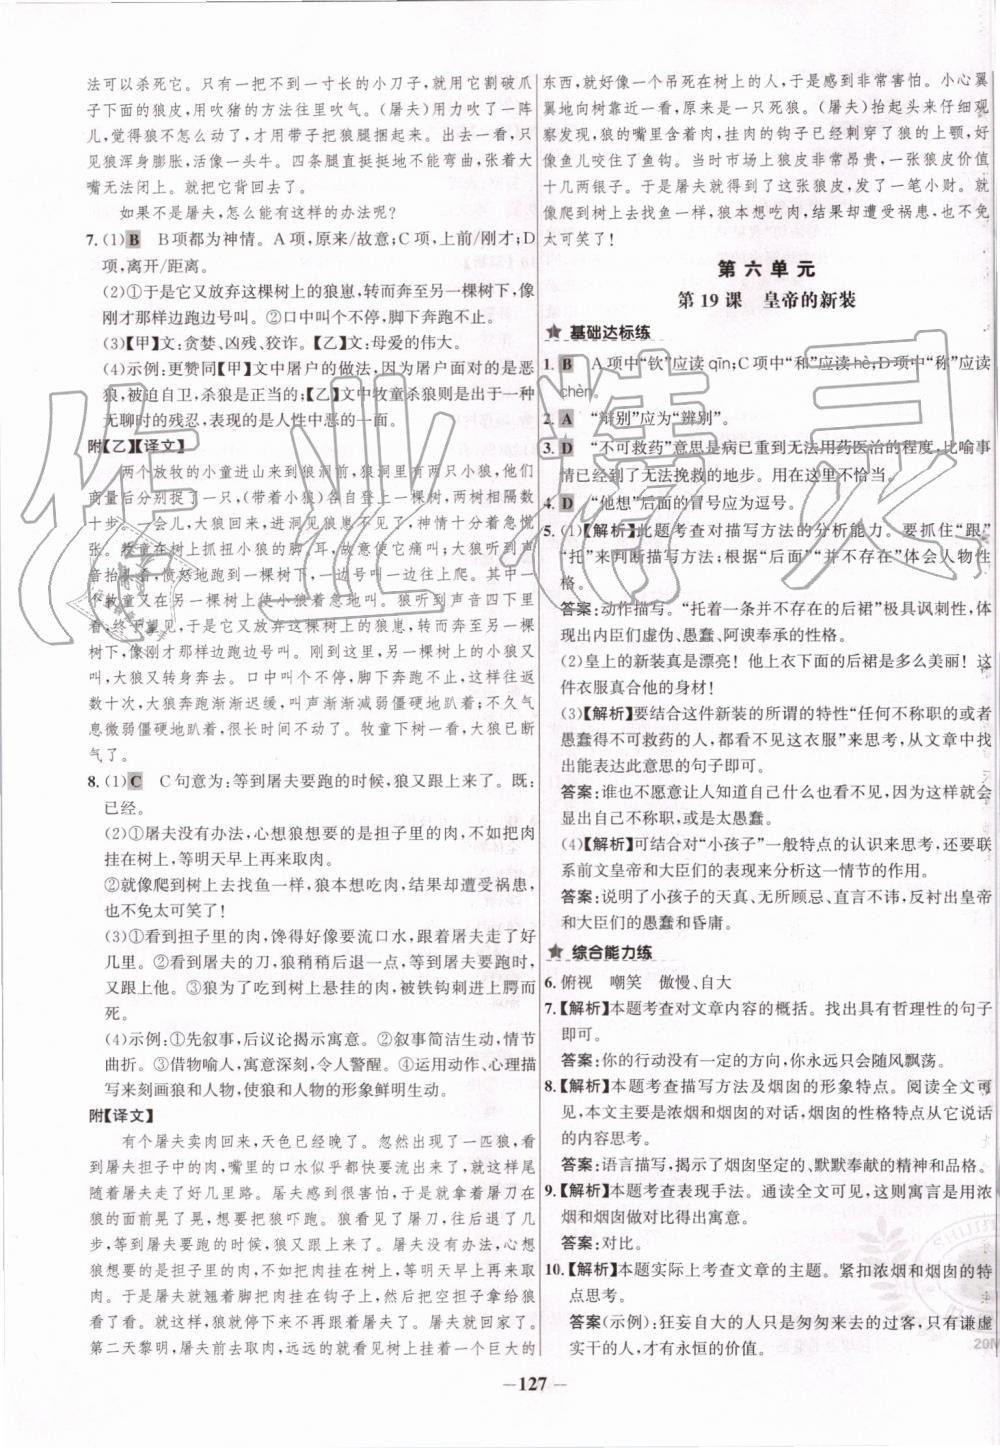 法可以杀死它。只有一把不到一寸长的小刀子,就用它割破爪
子下面的狼皮,用吹猪的方法往里吹气。(屠夫)用力吹了一阵
儿,觉得狼不怎么动了,才用带子把狼腿捆起来。出去一看,只
见狼浑身膨胀,活像一头牛。四条腿直挺挺地不能弯曲,张着大
嘴无法闭上。就把它背回家了。
如果不是屠夫,怎么能有这样的办法呢?
7. (1) B B项都为神情。A项,原来/故意;C项,上前/刚才;D
项,离开/距离。
(2)①于是它又放弃这棵树上的狼崽,转而奔至另一棵树下,像
刚才那样边跑边号叫。②口中叫个不停,脚下奔跑不止。
(3)【甲】文:贪婪、凶残、狡诈。【乙】文:母爱的伟大。
(4)示例:更赞同【甲】文中屠户的做法,因为屠户面对的是恶
狼,被迫自卫,杀狼是正义的;【乙】文中牧童杀狼则是出于一种
无聊时的残忍,表现的是人性中恶的一面。
附【乙】【译文】
两个放牧的小童进山来到狼洞前,狼洞里有两只小狼,他们
商量后分别捉了一只,(带着小狼)各自登上一棵树,两树相隔数
十步。一会儿,大狼回来,进洞见狼崽不见了,神情十分急慌慌
张。牧童在树上抓扭小狼的脚、耳,故意使它嗥叫;大狼听到声
音抬头看,愤怒地跑到一棵树下,一边号叫一边往上爬。另一
个牧童又在另一棵树上使小狼着急地叫。狼听到声音四下里
看,终于望见,于是它又放弃这棵树上的狼崽,转而奔至另一棵
树下,像刚才那样边跑边号叫。刚到这里,原先树上的小狼又叫
了,大狼又转身奔去。口中叫个不停,脚下奔跑不止。这样往返
数十次,大狼奔跑渐渐迟缓,叫声渐渐减弱;后来奄奄一息
地僵硬地趴着,很长时间不动了。牧童下树来看,大狼已断
气了。
8. (1) C C句意为:等到屠夫要跑的时候,狼又跟上来了。既:
已经。
(2)①屠夫没有办法,心想狼想要的是担子里的肉,不如把肉
挂在树上,等明天早上再来取肉。
②就像爬到树上去找鱼一样,狼本想吃肉,结果却遭受祸患,
也不免太可笑了!
(3)①看到担子里的肉,馋得好像要流口水,跟着屠夫走了好
几里。②看到屠夫的刀,狼到有些害怕,等到屠夫要跑时,
又跟上来。③狼为了吃到树上悬挂的肉,被铁钩刺进上腭而
死。
(4)示例:①先叙事,后议论揭示寓意。②叙事简洁生动,情节
曲折。③借物喻人,寓意深刻,令人警醒。④运用动作、心理描
写来刻画狼和人物,使狼和人物的形象鲜明生动。
附【译文】
有个屠夫卖肉回来,天色已经晚了。忽然出现了一匹狼,
看到屠夫担子中的肉,嘴里的口水似乎都快要流出来了,就尾
随着屠夫走了好几里路。屠夫感到很害怕,于是就拿着屠刀在
狼的面前晃了晃,想要吓吓狼。狼看见了屠刀,有点害怕,等到
屠夫要跑的时候,狼又跟上来了。屠夫没有办法,心想
狼想要的是担子里的肉,不如把肉挂在树上,等明天早上再来
取肉。于是屠夫就翘着脚把肉挂在钩子上,然后挂在树上,
还把空担子给狼看了看,狼就不再跟着屠夫了。屠夫就回家了。
第二天黎明,屠夫前去取肉,远远就看见树上挂着一个巨大的
东西,就好像一个吊死在树上的人,于是感到非常害怕。小心翼
翼地向树靠近一看,原来是一只死狼。(屠夫)抬起头来仔细观
察发现,狼的嘴里含着肉,挂肉的钩子已经刺穿了狼的上颚,好
像鱼儿咬住了鱼钩。当时市场上狼皮非常昂贵,一张狼皮价值
十几两银子。于是屠夫就得到了这张狼皮,发了一笔小财。就
像爬到树上去找鱼一样,狼本想吃肉,结果却遭受祸患,也不免
太可笑了!
第六单元
第19课 皇帝的新装
★ 基础达标练
1. B A项中“钦”应读qīn;C项中“和”应读hè;D项中“称”应读
chèn。
2. A “辩别”应为“辨别”。
3. D “不可救药”意思是病已重到无法用药医治的程度,比喻事
情已经到了无法挽救的地步。用在这里不恰当。
4. D “他想”后面的冒号应为逗号。
5. (1)【解析】此题考查对描写方法的分析能力。要抓住“跟”
“托”来判断描写方法;根据“后面”“并不存在”体会人物性
格。
答案:动作描写。“托着一条并不存在的后裙”极具讽刺性,体
现出内臣们虚伪、愚蠢、阿谀奉承的性格。
(2)皇上的新装真是漂亮!他上衣下面的后裙是多么美丽!这
件衣服真合他的身材!
(3)【解析】要结合这件新装的所谓的特性“任何不称职的或者
愚蠢得不可救药的人,都看不见这衣服”来思考,从文章中找
出能表达此意思的句子即可。
答案:谁也不愿意让人知道自己什么也看不见,因为这样就会
显出自己不称职,或是太愚蠢。
(4)【解析】可结合对“小孩子”一般特点的认识来思考,还要联
系前文皇帝和大臣们的表现来分析这一情节的作用。
答案:说明了小孩子的天真、无所顾忌、直言不讳,反衬出皇帝
和大臣们的愚蠢和昏庸。
★ 综合能力练
6. 俯视 嘲笑 傲慢、自大
7. 【解析】本题考查对文章内容的概括。找出具有哲理性的句子
即可。
答案:你的行动没有一定的方向,你永远只会随风飘荡。
8. 【解析】本题考查描写方法及烟囱的形象特点。阅读全文可
见,本文主要是浓烟和烟囱的对话,烟囱的性格特点从它说话
的内容思考。
答案:语言描写,揭示了烟囱坚定的、默默奉献的精神和品格。
9. 【解析】本题考查表现手法。通读全文可见,这则寓言是用浓
烟和烟囱作对比得出寓意。
答案:对比。
10. 【解析】本题实际上考查文章的主题。紧扣浓烟和烟囱的特
点思考。
答案(示例):狂妄自大的人只是匆匆的过客,只有谦虚
实干的人,才有永恒的价值。
— 127 —